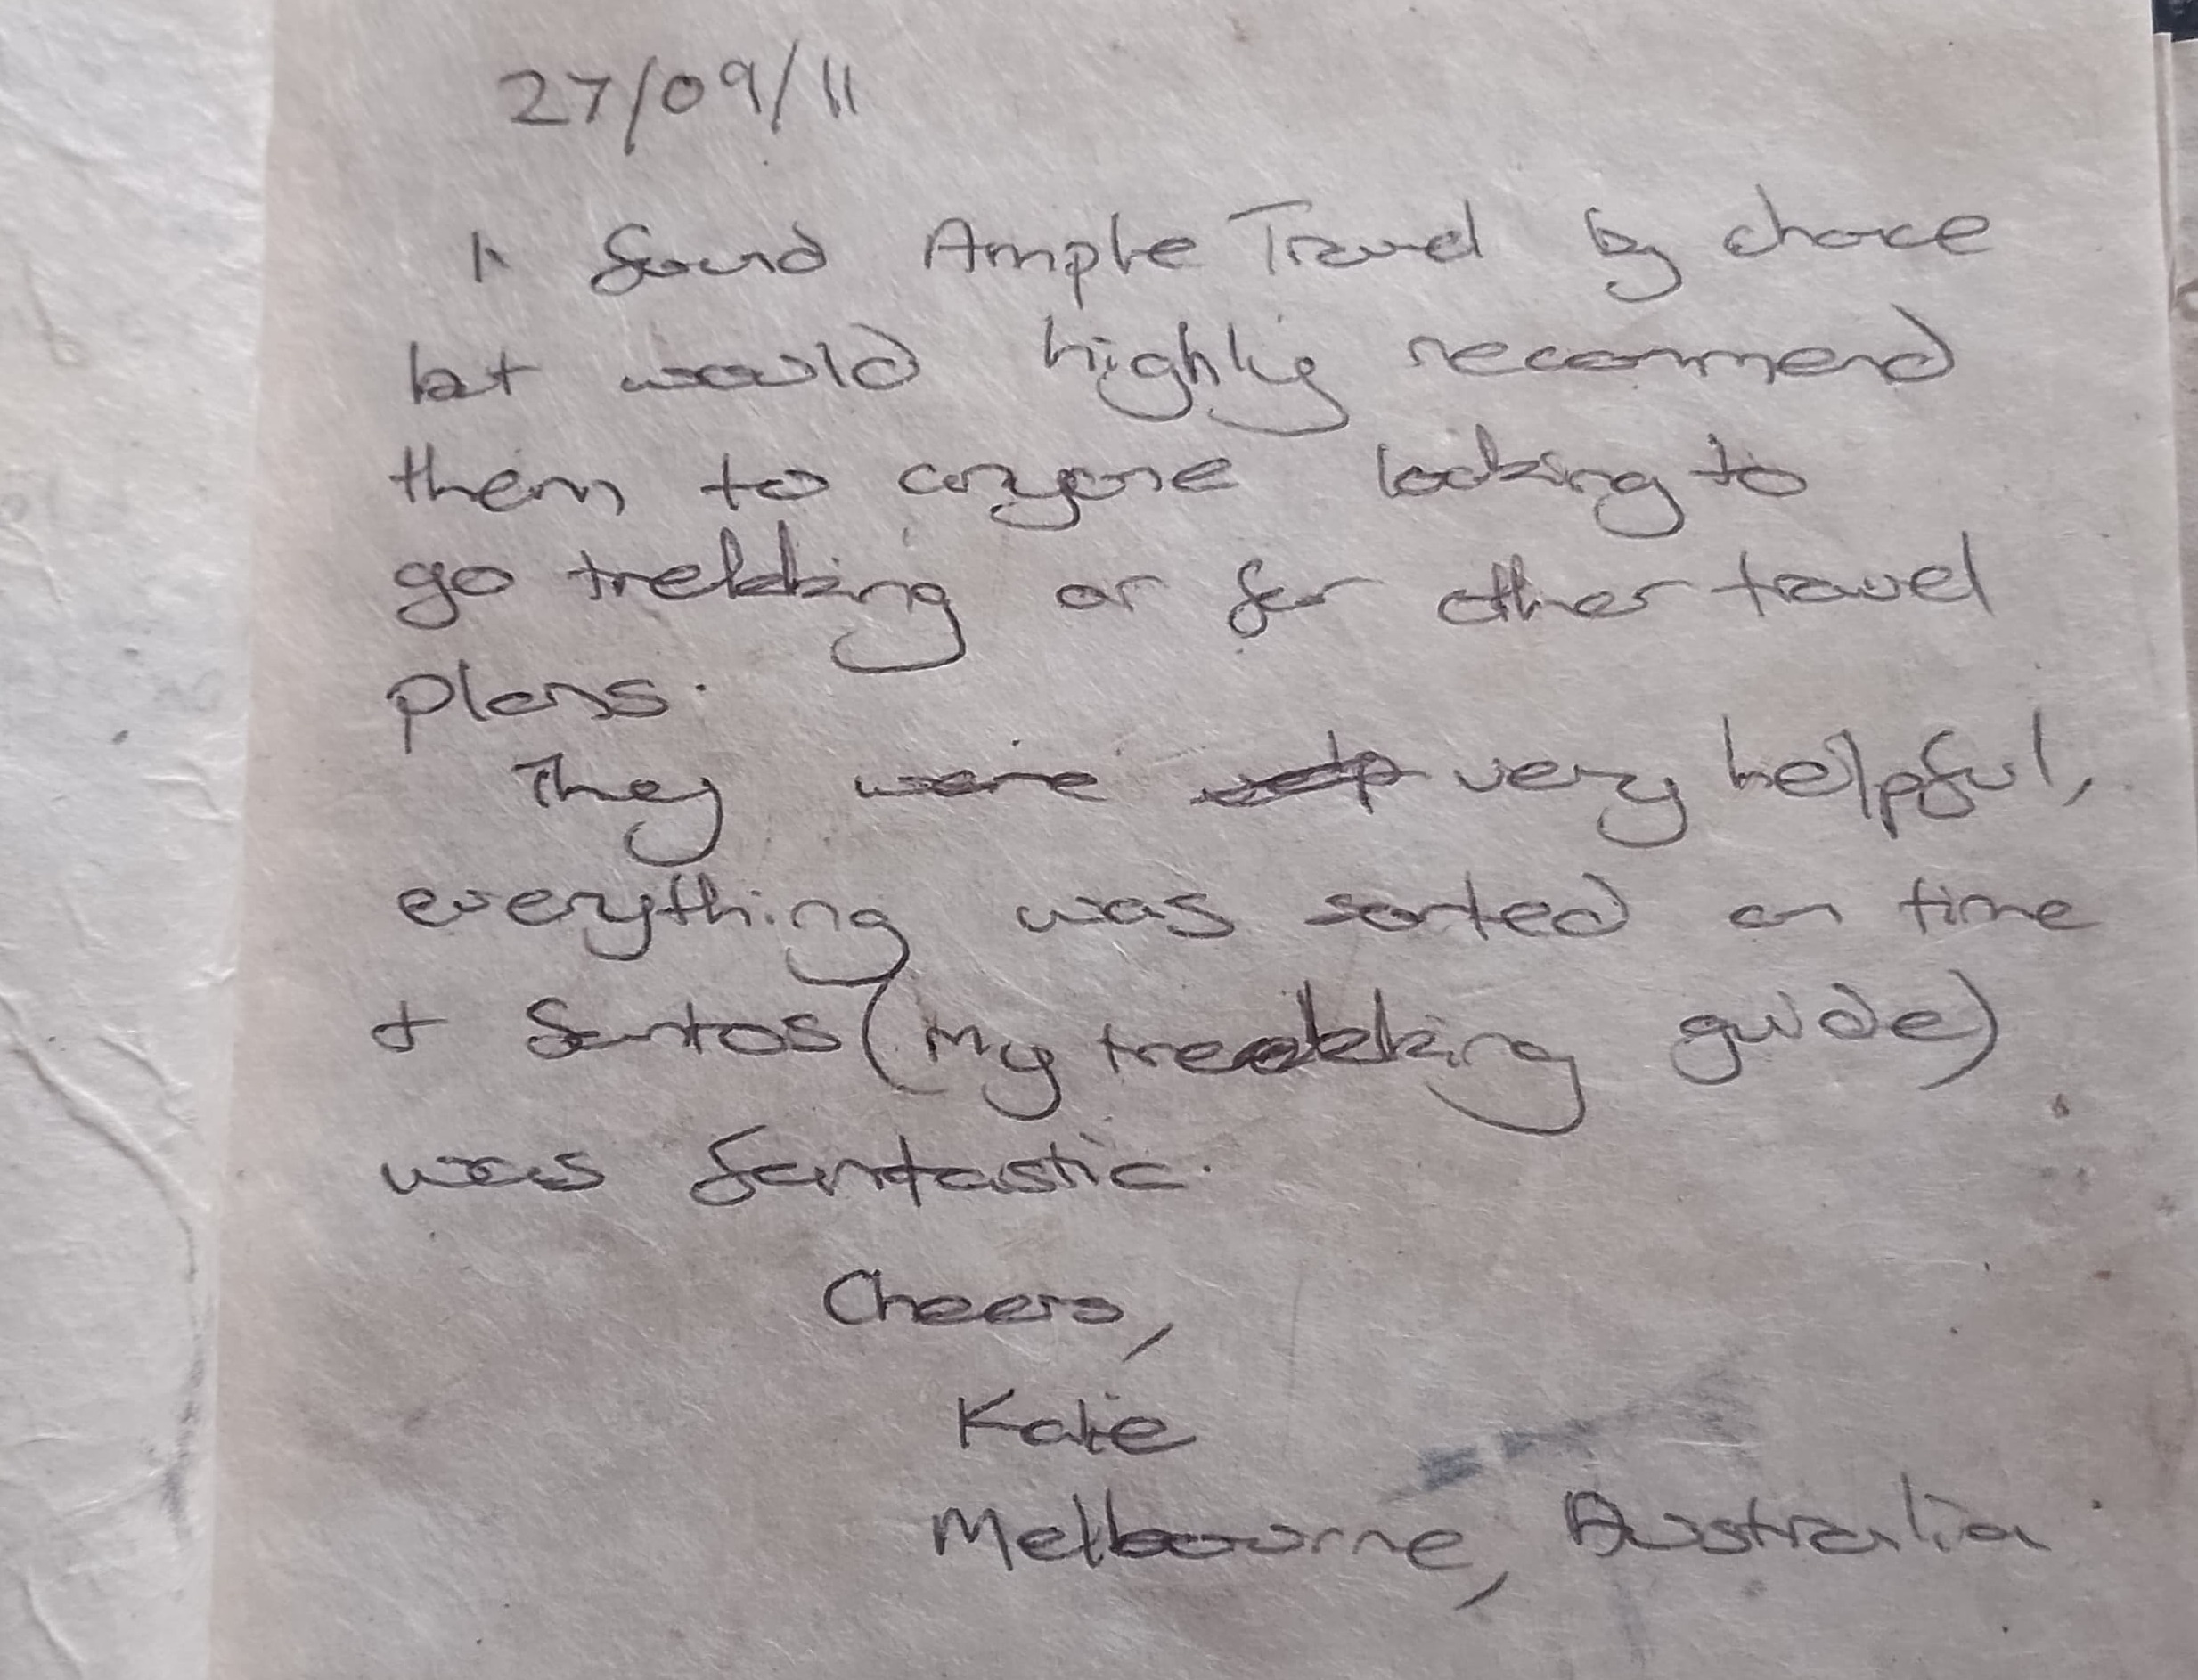 27/09/11
I found Ample Travel by chance
but would highly recommend
them to anyone looking to
go trekking or for other travel
plans.
They were very helpful,
everything was sorted on time
+ Santos (my trekking guide)
was fantastic.
Cheers,
Katie
Melbourne, Australia